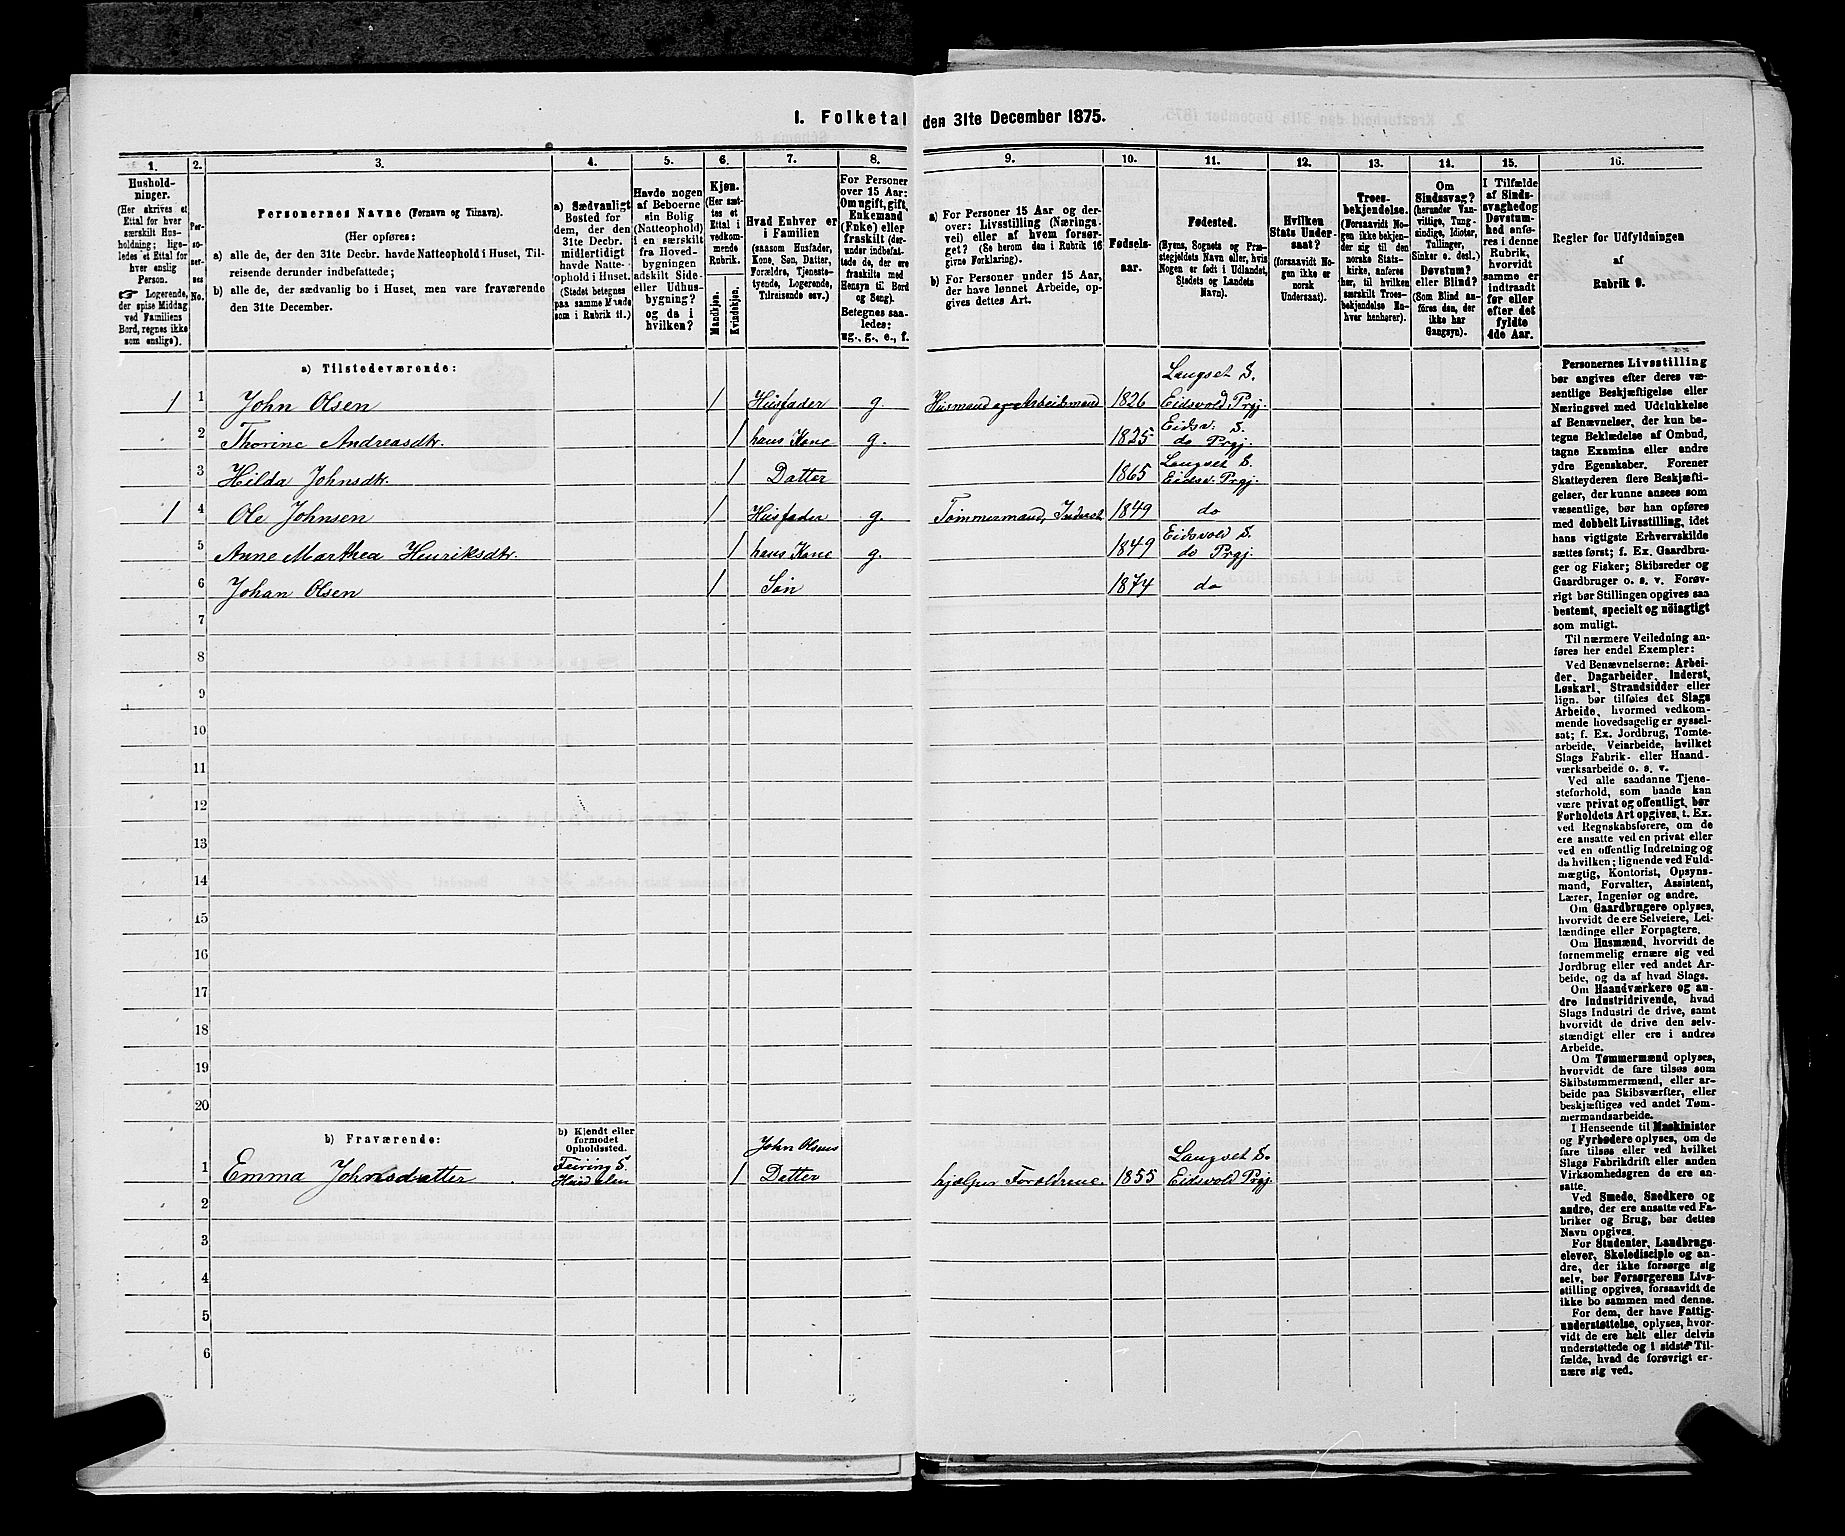 1. Folketal den 31te December 1875.
1. 2. 3. 4. 5. 6. 7. 8. 9. 10. 11. 12. 13. 14. 15. 16.
Hushold-
ninger.
(Her skrives et
Ettal for hver
særskilt Hus-
holdning; lige-
ledes et Ettal for
hver enslig
Person.
☞ Logerende,
der spise Middag
ved Familiens
Bord, regnes ikke
som enslige).
Per-
so-
ner-
nes
No.
Personernes Navne (Fornavn og Tilnavn).
(Her opføres:
a) alle de, der den 31te Decbr. havde Natteophold i Huset, Til-
reisende derunder indbefattede;
b) alle de, der sædvanlig bo i Huset, men vare fraværende
den 31te December.
a) Sædvanligt
Bosted for
dem, der den
31te Decbr.
midlertidigt
havde Natte-
ophold i Huset.
(Stedet betegnes
paa samme Maade
som i Rubrik 11.)
Havde nogen
af Beboerne
sin Bolig
(Natteophold)
i en særskilt
fra Hoved-
bygningen
adskilt Side-
eller Udhus-
bygning?
og da i
hvilken?
Kjøn.
(Her sæt-
tes et
Ettal i
vedkom-
mende
Rubrik.
Mandkjøn.
Kvindekjøn.
Hvad Enhver er
i Familien
(saasom Husfader,
Kone, Søn, Datter,
Forældre, Tjeneste-
tyende, Logerende,
Tilreisende osv.)
For Personer
over 15 Aar:
Om ugift, gift,
Enkemand
(Enke) eller
fraskilt (der-
under indbefat-
tede de, der ere
fraskilte med
Hensyn til Bord
og Seng).
Betegnes saa-
ledes:
ug., g., e., f.
a) For Personer 15 Aar og der-
over: Livsstilling (Nærings-
vei) eller af hvem forsør-
get? (Se herom den i Rubrik 16
givne Forklaring).
b) For Personer under 15 Aar,
der have lønnet Arbeide, op-
gives dettes Art.
Fødsels-
aar.
Fødested.
(Byens, Sognets og Præ-
stegjeldets Navn eller, hvis
Nogen er født i Udlandet,
Stedets og Landets
Navn).
Hvilken
Stats Under-
saat?
(forsaavidt No-
gen ikke er
norsk
Undersaat).
Troes-
bekjendelse.
(Forsaavidt No-
gen ikke bekjen-
der sig til den
norske Stats-
kirke, anføres
her, til hvilken
særskilt Troes-
bekjendelse En-
hver henhører).
Om
Sindssvag?
(herunder Van-
vittige, Tung-
sindige, Idioter,
Tullinger,
Sinker o. desl.)
Døvstum?
eller Blind?
(Som Blind an-
føres den, der
ikke har
Gangsyn).
I Tilfælde
af Sinds-
svaghed og
Døvstum-
hed anfø-
res i denne
Rubrik,
hvorvidt
samme er
indtraadt
før eller
efter det
fyldte
4de Aar.
Regler for Udfyldningen
af
Rubrik 9.
a) Tilstedeværende:
Langset S.
1 1 John Olsen 1 Husfader g. Husmand og Arbeidsmand 1826 Eidsvold Prgj.
Eidsv. S.
2 Thorine Andreasdtr. 1 hans Kone g. 1825 do Prgj.
Langset S.
3 Hilda Johnsdtr. 1 Datter 1865 Eidsv. Prgj.
1 4 Ole Johnsen 1 Husfader g. Tømmermand, Inderst 1849 do
Eidsvold S.
5 Anne Marthea Henriksdtr. 1 hans Kone g. 1849 do Prgj.
6 Johan Olsen 1 Søn 1874 do
7
8
9
10
11
12
13
14
15
16
17
18
19
20
b) Fraværende:
b) Kjendt eller
formodet
Opholdssted.
John Olsens
Feiring S. Langset S.
1 Emma Johnsdatter 1 Datter hjælper Forældrene. 1855 Eidsvold Prgj.
2
3
4
5
6
Personernes Livsstilling
bør angives efter deres væ-
sentlige Beskjæftigelse eller
Næringsvei med Udelukkelse
af Benævnelser, der kun be-
tegne Beklædelse af Ombud,
tagne Examina eller andre
ydre Egenskaber. Forener
Skatteyderen flere Beskjæfti-
gelser, der kunne ansees som
væsentlige, bør han opføres
med dobbelt Livsstilling, idet
hans vigtigste Erhvervskilde
sættes først; f. Ex. Gaardbru-
ger og Fisker; Skibsreder og
Gaardbruger o. s. v. Forøv-
rigt bør Stillingen opgives saa
bestemt, specielt og nøiagtigt
som muligt.
Til nærmere Veiledning an-
føres her endel Exempler:
Ved Benævnelserne: Arbei-
der, Dagarbeider, Inderst,
Løskarl, Strandsidder eller
lign. bør tilføies det Slags
Arbeide, hvormed vedkom-
mende hovedsagelig er syssel-
sat; f. Ex. Jordbrug, Tomte-
arbeide, Veiarbeide, hvilket
Slags Fabrik- eller Haand-
værksarbeide o. s. v.
Ved alle saadanne Tjene-
steforhold, som baade kan
være privat og offentligt, bør
Forholdets Art opgives, t. Ex.
ved Regnskabsførere, om de
ere ansatte ved en privat eller
ved en offentlig Indretning og
da hvilken; lignende ved Fuld-
mægtig, Kontorist, Opsyns-
mand, Forvalter, Assistent,
Lærer, Ingeniør og andre.
Om Gaardbrugere oplyses,
hvorvidt de ere Selveiere, Lei-
lændinge eller Forpagtere.
Om Husmænd, hvorvidt de
fornemmelig ernære sig ved
Jordbrug eller ved andet Ar-
beide, og da af hvad Slags.
Om Haandværkere og an-
dre Industridrivende, hvad
Slags Industri de drive, samt
hvorvidt de drive den selv-
stændigt eller ere i andres
Arbeide.
Om Tømmermænd oplyses,
hvorvidt de fare tilsøs som
Skibstømmermænd, eller ar-
beide paa Skibsværfter, eller
beskjæftiges ved andet Tøm-
mermandsarbeide.
I Henseende til Maskinister
og Fyrbødere oplyses, om de
fare tilsøs eller ved hvilket
Slags Fabrikdrift eller anden
Virksomhedsgren de ere an-
satte.
Ved Smede, Snedkere og
andre, der ere ansatte ved Fa-
briker og Brug, bør dettes
Navn opgives.
For Studenter, Landbrugs-
elever, Skoledisciple og an-
dre, der ikke forsørge sig
selv, bør Forsørgerens Livs-
stilling opgives, forsaavidt de
ikke bo sammen med denne.
For dem, der have Fattig-
understøttelse, oplyses, hvor-
vidt de ere helt eller delvis
understøttede og i sidste Til-
fælde, hvad de forøvrigt er-
nære sig ved.